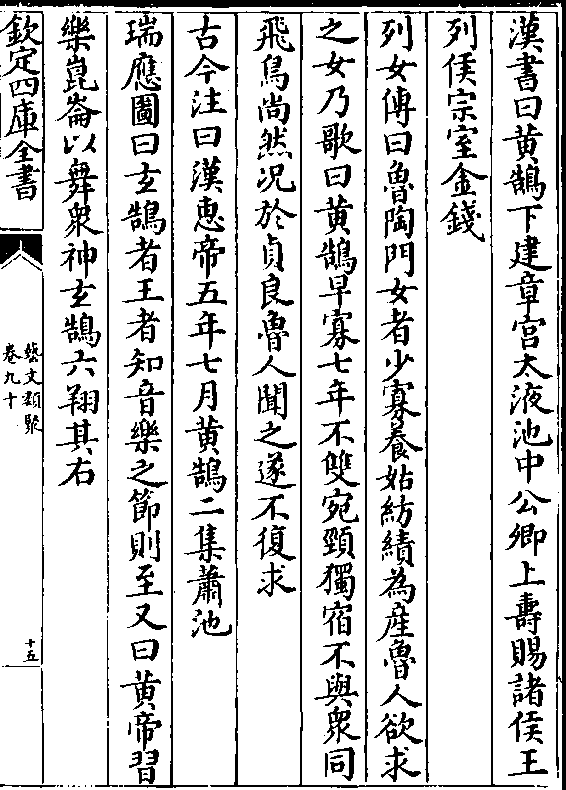 漢書曰黄鵠下建章宫太液池中公卿上壽賜諸侯王
列侯宗室金錢
列女傳曰魯陶門女者少寡養姑紡績為産魯人欲求
之女乃歌曰黄鵠早寡七年不雙宛頸獨宿不與衆同
飛鳥尚然况於貞良魯人聞之遂不復求
古今注曰漢恵帝五年七月黄鵠二集蕭池
瑞應圖曰玄鵠者王者知音樂之節則至又曰黄帝習
樂崑崙以舞衆神玄鵠六翔其右
欽定四庫全書
藝文類聚
卷九十
十五